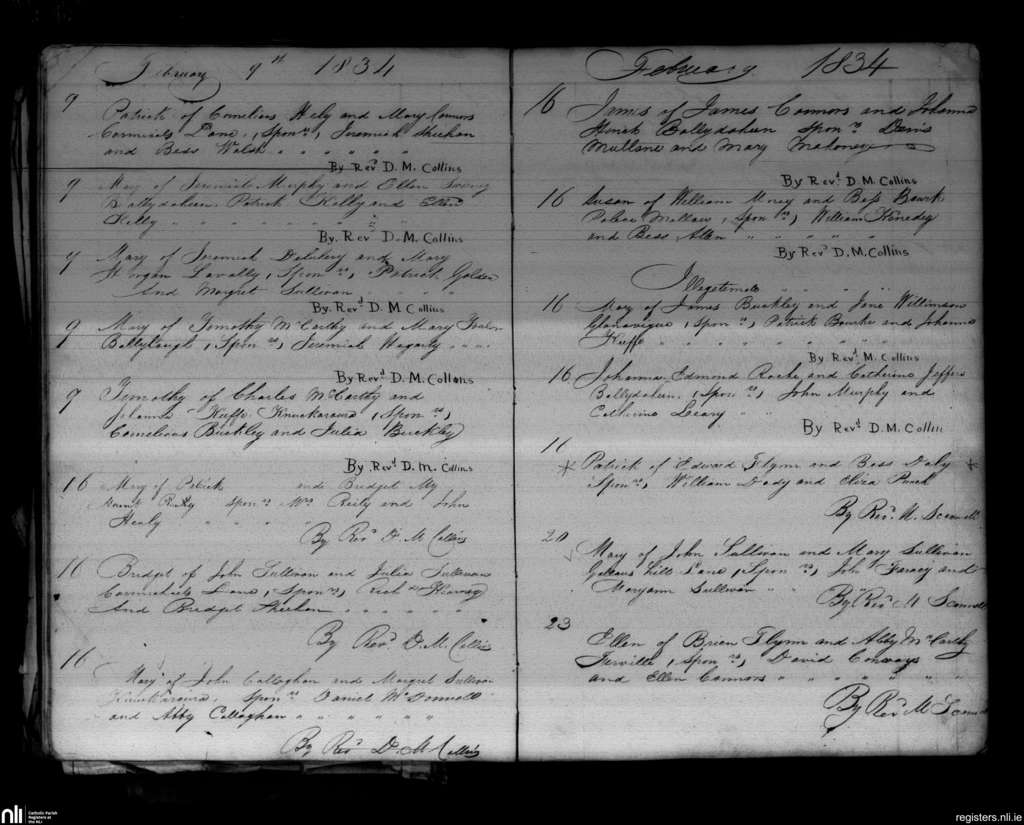 February 9th 1834
9
Patrick of Cornelius Hely and Mary Connors
Carmicals Lane, Sponrs, Jeremiah Sheehan
and Bess Walsh " " " "
By Revd D. M. Collins
9
Mary of Jeremiah Murphy and Ellen
Ballydahin Patrick Kelly and Ellen
Kelly
By. Revd D. M. Collins
9
Mary of Jeremiah and Mary
Horgan Lavally, Sponrs, Patrick Golden
And Margret Sullivan
By Revd D. M Collins
9
Mary of Timothy McCarthy and Mary
Ballylough, Sponrs, Jeremiah Hagarty " " "
By Revd D. M. Collans
9
Timothy of Charles McCarthy and
Johanna Kuffe Knuckarowra, Sponrs,
Cornelious Buckley and Julia Buckley
By Revd D. M. Collins
16
Mary of Patrick and Bridget
Sponrs Mrs Reily and John
Healy
By Revd D. M Collins
16
Bridget of John Sullivan and Julia Sullivan
Carmichils Lane, Sponrs, Richd
And Bridget Sheehan
By Revd D. M. Collins
16
Mary of John Callaghan and Margret Sullivan
Sponrs Daniel McDonnell
and Abby Callaghan " " " " "
By Revd D. M Collins
February 1834
16
James of James Connors and Johanna
Ballydahin Sponrs Denis
Mullane and Mary Mahoney
By Revd D. M. Collins
16
Susan of William and Bess Bourk
Mallow, Sponrs, William Kenedy
and Bess Allen " " " "
By Revd D. M. Collins
Illegetemate
16
Mary of James Buckley and Jane Williamson
Sponrs, Patrick Bourke and Johanna
Kuffe
By Revd M. Collins
16
Johanna Edmond Roche and Catherine
Ballydahin, Sponrs, John Murphy and
Catherine Leary
By Revd D. M. Collin
16
* Patrick of Edward Flynn and Bess Daly *
Sponrs, William Dady and Eliza
By Revd M. Scannell
20
Mary of John Sullivan and Mary Sullivan
Hill Lane, Sponrs, John and
Maryann Sullivan
By Revd M Scannell
23
Ellen of Brien Flynn and Abby McCarthy
Sponrs, David Conways
and Ellen Connors " " " " "
By Revd M Scannell
nli
Catholic Parish
Registers at
the NLI
registers.nli.ie